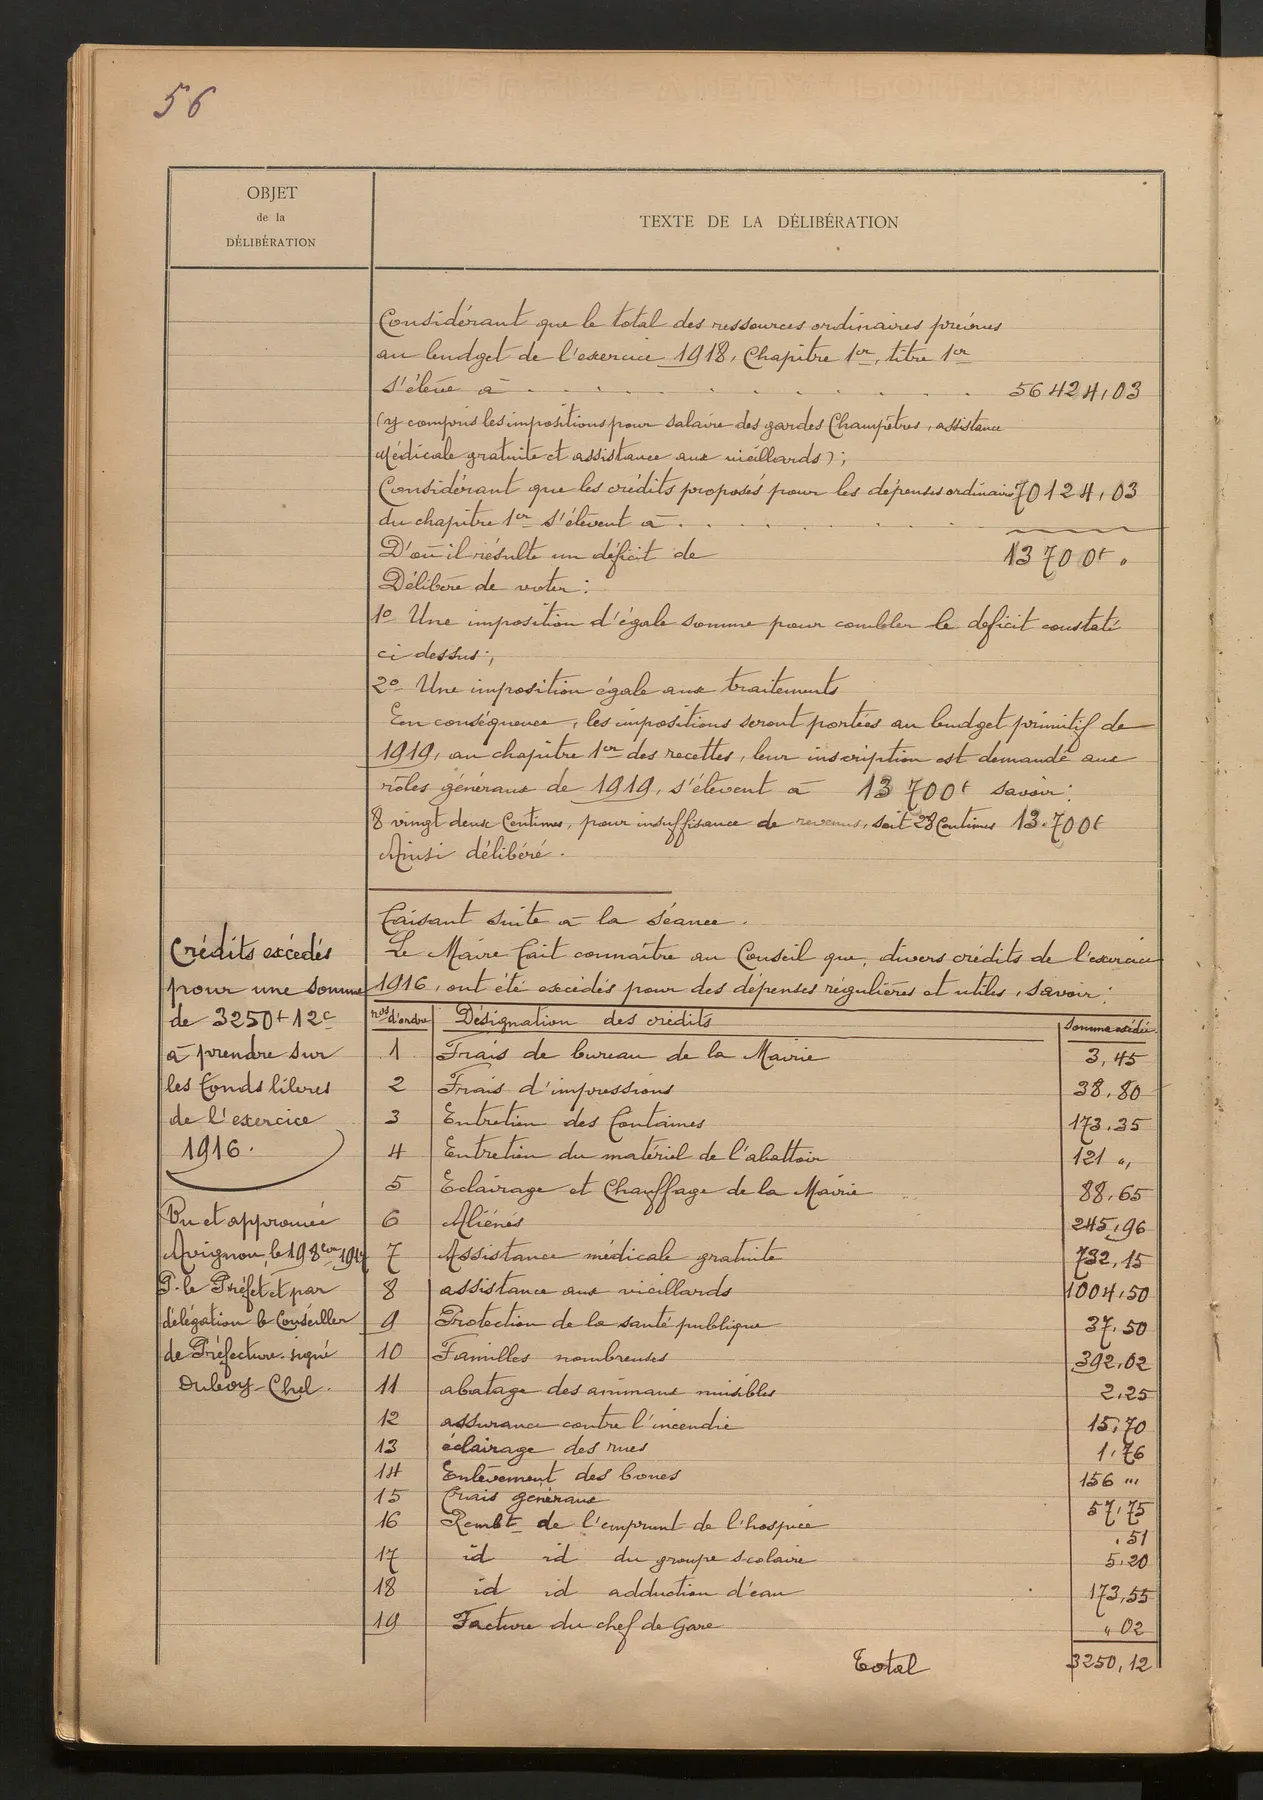 56
OBJET
de la
DÉLIBÉRATION
TEXTE DE LA DÉLIBÉRATION
Considérant que le total des ressources ordinaires prévues
au budget de l'exercice 1918, Chapitre 1er, titre 1er
s'élève à . . . . . . . . 56424,03
(y compris les impositions pour salaire des gardes Champêtres, assistance
Médicale gratuite et assistance aux vieillards);
Considérant que les crédits proposés pour les dépenses ordinaires 70124,03
du chapitre 1er s'élèvent à . . . . . .
D'où il résulte un déficit de 13700f "
Délibère de voter :
1o Une imposition d'égale somme pour combler le déficit constaté
ci dessus;
2o Une imposition égale aux traitements
En conséquence, les impositions seront portées au budget primitif de
1919, au chapitre 1er des recettes, leur inscription est demandé aux
rôles généraux de 1919, s'élèvent à 13700f savoir :
8 vingt deux Centimes, pour insuffisance de revenus, soit 28 Centimes 13.700f
Ainsi délibéré.
Faisant suite à la séance.
Le Maire fait connaître au Conseil que, divers crédits de l'exercice
1916, ont été excédés pour des dépenses régulières et utiles, savoir :
Crédits excédés
pour une somme
de 3250f 12c
à prendre sur
les fonds libres
de l'exercice
1916.
Vu et approuvée
Avignon, le 19 8bre 1917
P. le Préfet et par
délégation le Conseiller
de Préfecture. signé
Duboy-Chel.
nos d'ordre Désignation des crédits Somme excédée
1 Frais de bureau de la Mairie 3,45
2 Frais d'impressions 38,80
3 Entretien des Fontaines 173,35
4 Entretien du matériel de l'abattoir 121 "
5 Eclairage et Chauffage de la Mairie 88,65
6 Aliénés 245,96
7 Assistance médicale gratuite 732,15
8 assistance aux vieillards 1004,50
9 Protection de la santé publique 37,50
10 Familles nombreuses 392,02
11 abatage des animaux nuisibles 2,25
12 assurance contre l'incendie 15,70
13 éclairage des rues 1,76
14 Enlèvement des boues 156 "
15 Frais généraux 57,75
16 Rembt de l'emprunt de l'hospice ,51
17 id id du groupe scolaire 5,20
18 id id adduction d'eau 173,55
19 Facture du chef de Gare " 02
Total 3250,12